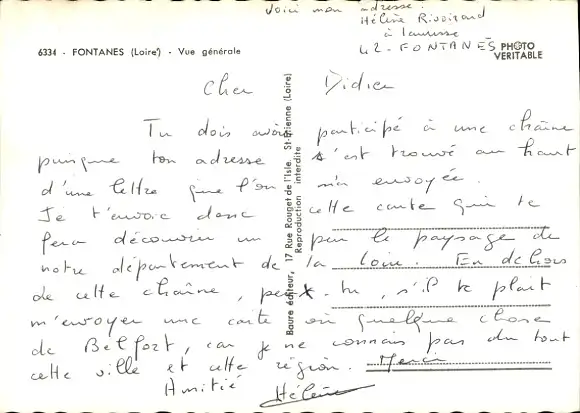 Voici mon adresse :
Hélène Rivoirard
à Laurisse
42 - FONTANÈS
6334 - FONTANES (Loire) - Vue générale
PHOTO
VERITABLE
Cher Didier
Tu dois avoir participé à une chaîne
puisque ton adresse s'est trouvé au haut
d'une lettre que l'on m'a envoyée.
Je t'envoie donc cette carte qui te
fera découvrir un peu le paysage de
notre département de la Loire. En dehors
de cette chaîne, peux-tu, s'il te plaît
m'envoyer une carte où quelque chose
de Belfort, car je ne connais pas du tout
cette ville et cette région. Merci
Amitié Hélène
Baure éditeur, 17 Rue Rouget de l'Isle. St-Etienne (Loire)
Reproduction interdite